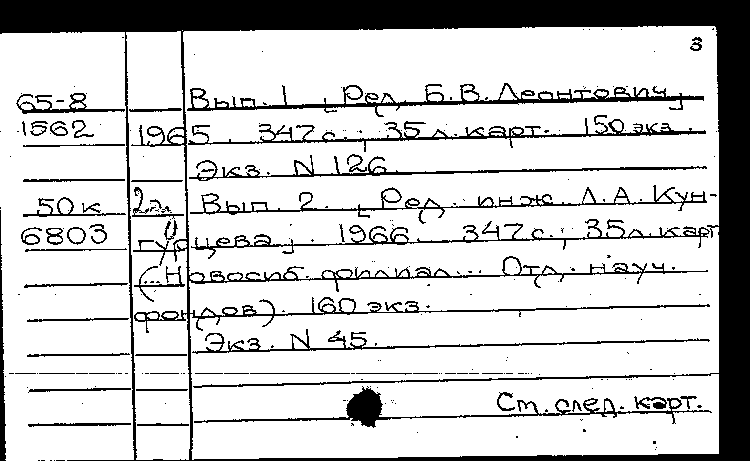 3
65-8 Вып. 1 [Ред. Б.В. Леонтович]
1562 1965. 347 с.; 35 л. карт. 150 экз.
Экз. N 126.
50к Вып. 2. [Ред. инж. Л.А. Кун-
6803 гурцева]. 1966. 347 с.; 35 л. карт
(...Новосиб. филиал... Отд. науч.
фондов). 160 экз.
Экз. N 45.
См. след. карт.